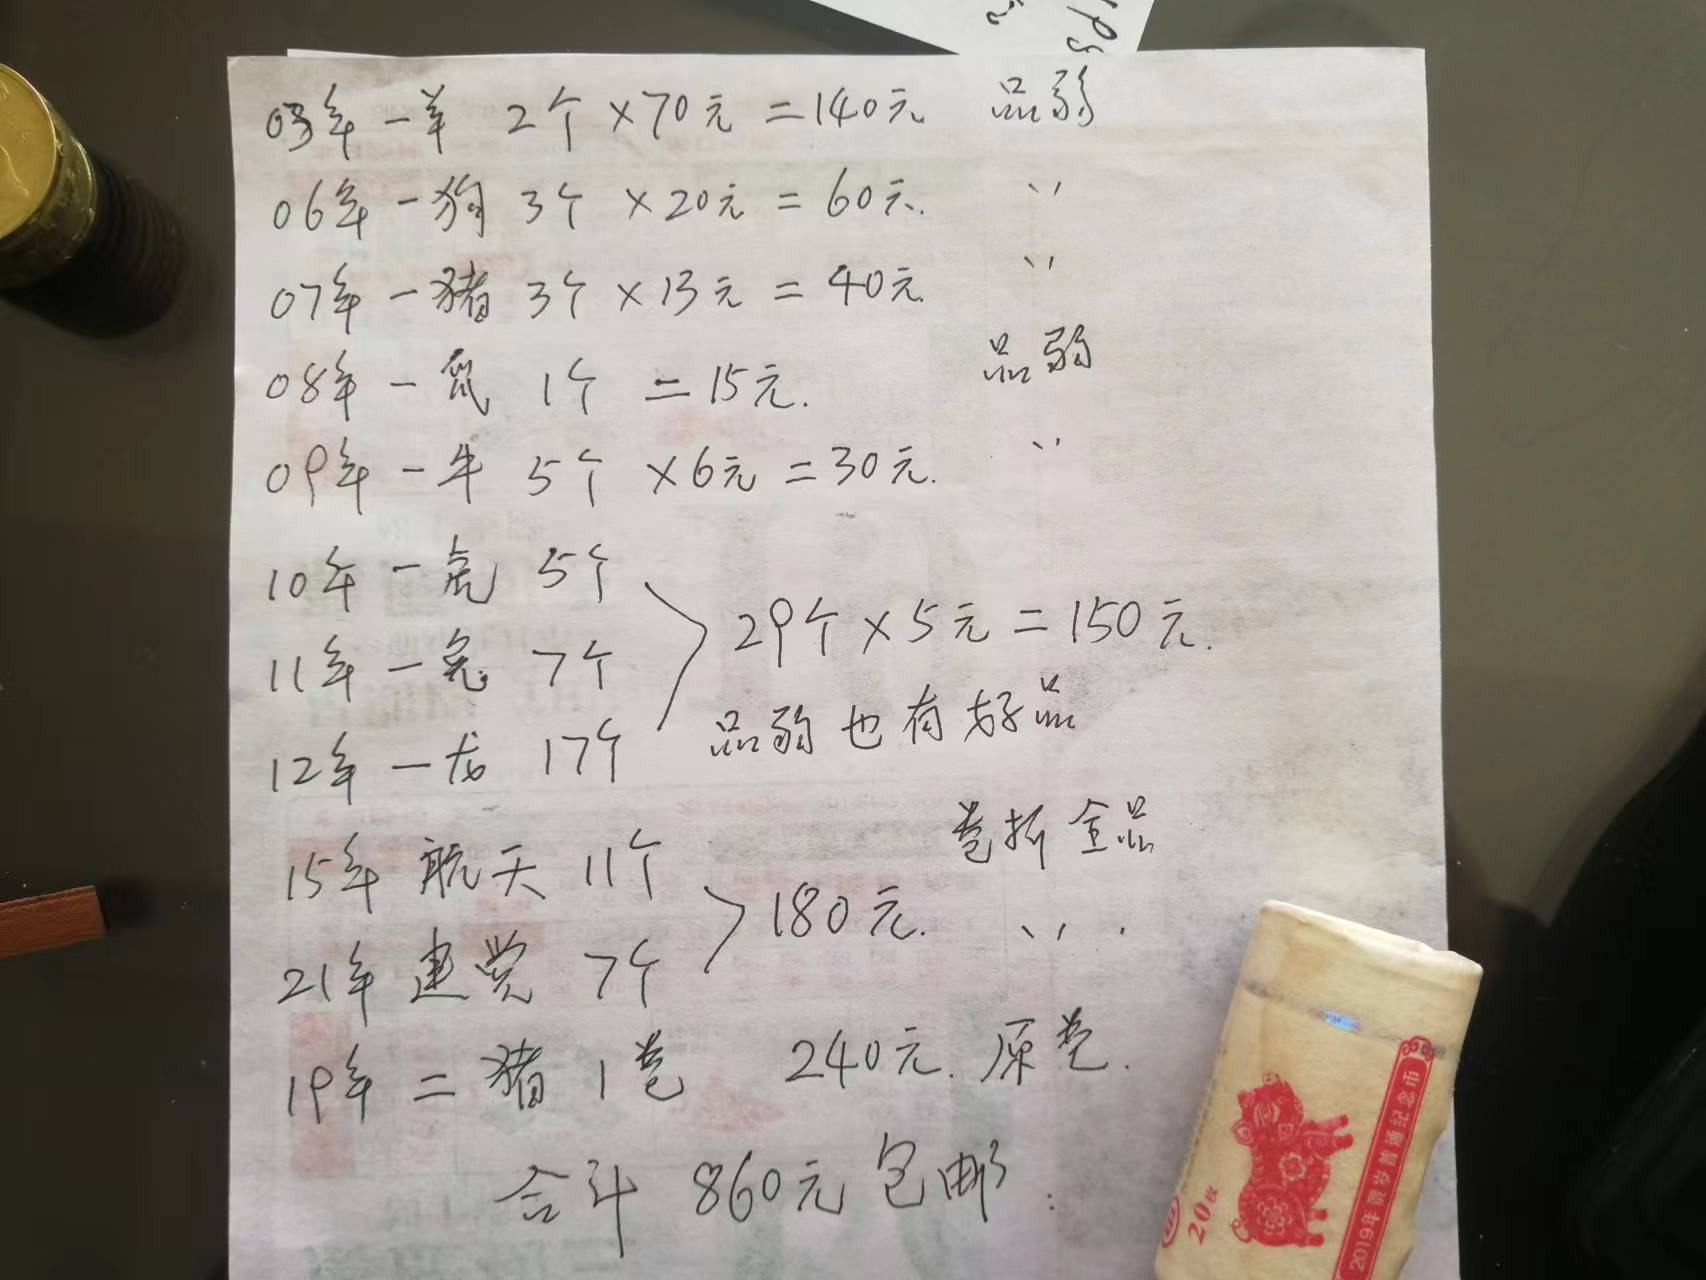 03年一羊 2个×70元=140元 品弱
06年一狗 3个×20元=60元. 〃
07年一猪 3个×13元=40元. 〃
08年一鼠 1个 =15元. 品弱
09年一牛 5个×6元=30元. 〃
10年一虎 5个
11年一兔 7个
29个×5元=150元.
12年一龙 17个
品弱也有好品
卷拆全品
15年航天 11个
180元. 〃.
21年建党 7个
19年二猪1卷 240元.原卷.
合计 860元包邮
20枚
2019年贺岁普通纪念币